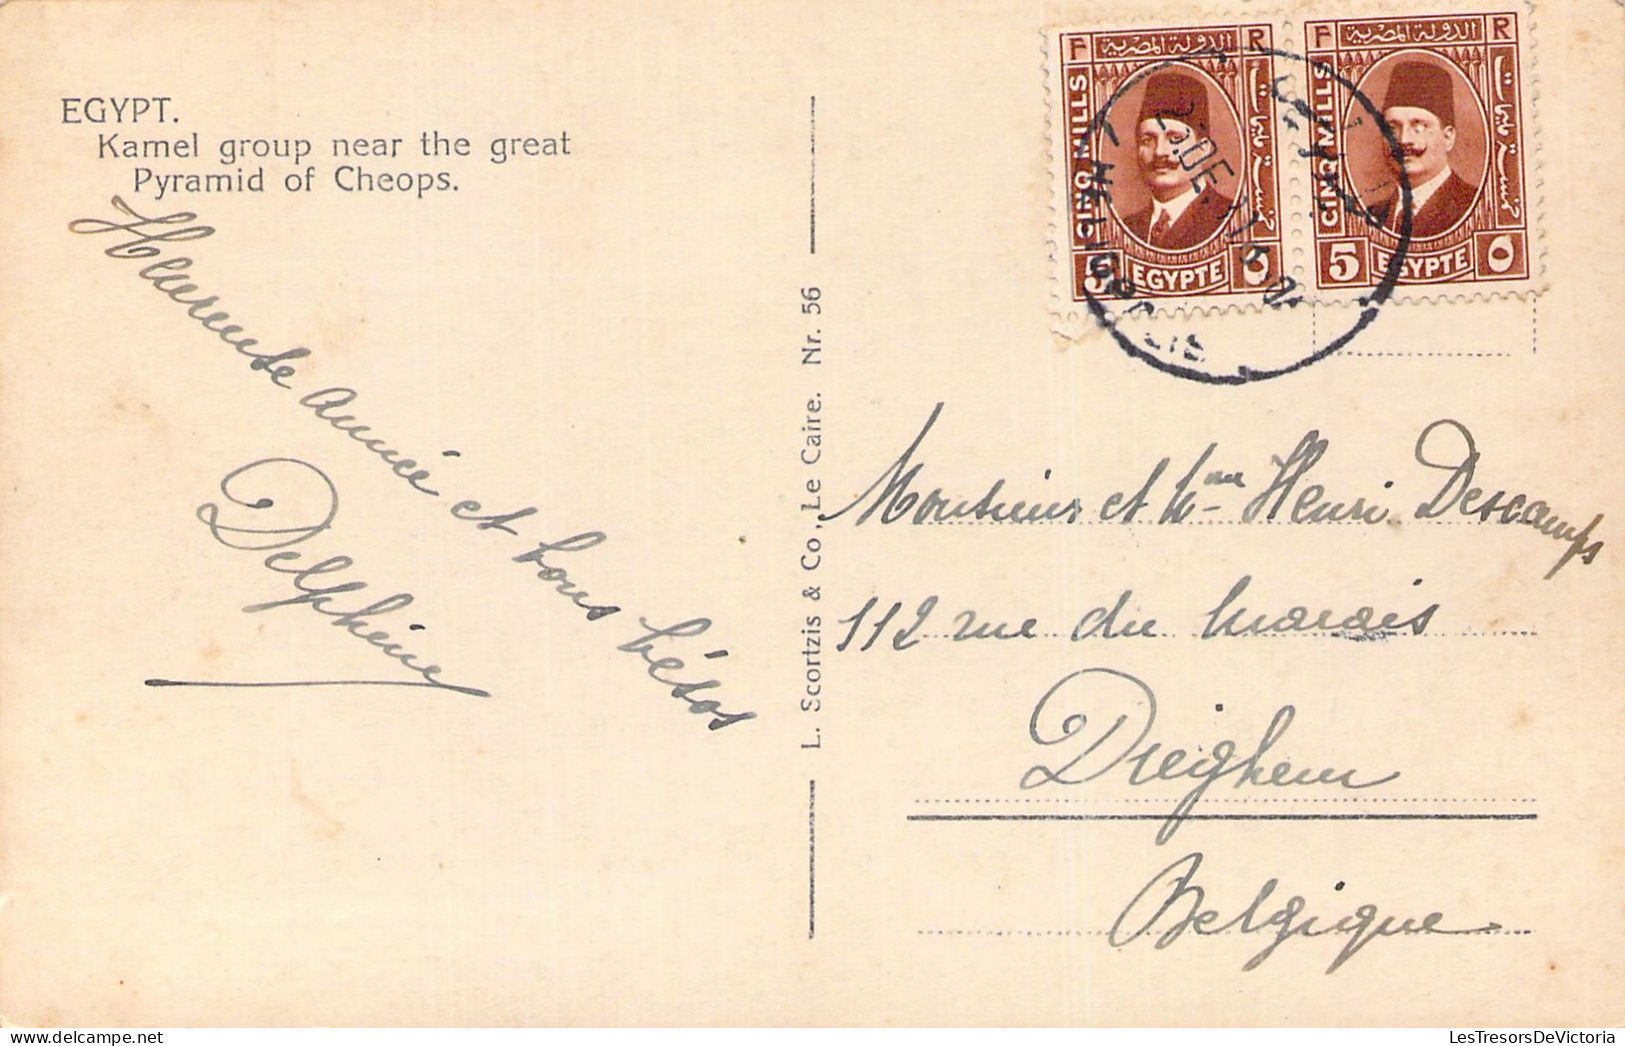 EGYPT.
Kamel group near the great
Pyramid of Cheops.
Heureuse année et bons bésos
Delphine
L. Scortzis & Co, Le Caire. Nr. 56
F الدولة المصرية R
CINQ MILLS
خمسة مليمات
5 EGYPTE ٥
F الدولة المصرية R
CINQ MILLS
خمسة مليمات
5 EGYPTE ٥
HELIOPOLIS
23.DE.
Monsieur et Mme Henri Descamps
112 rue du Marais
Dieghem
Belgique
LesTresorsDeVictoria.com